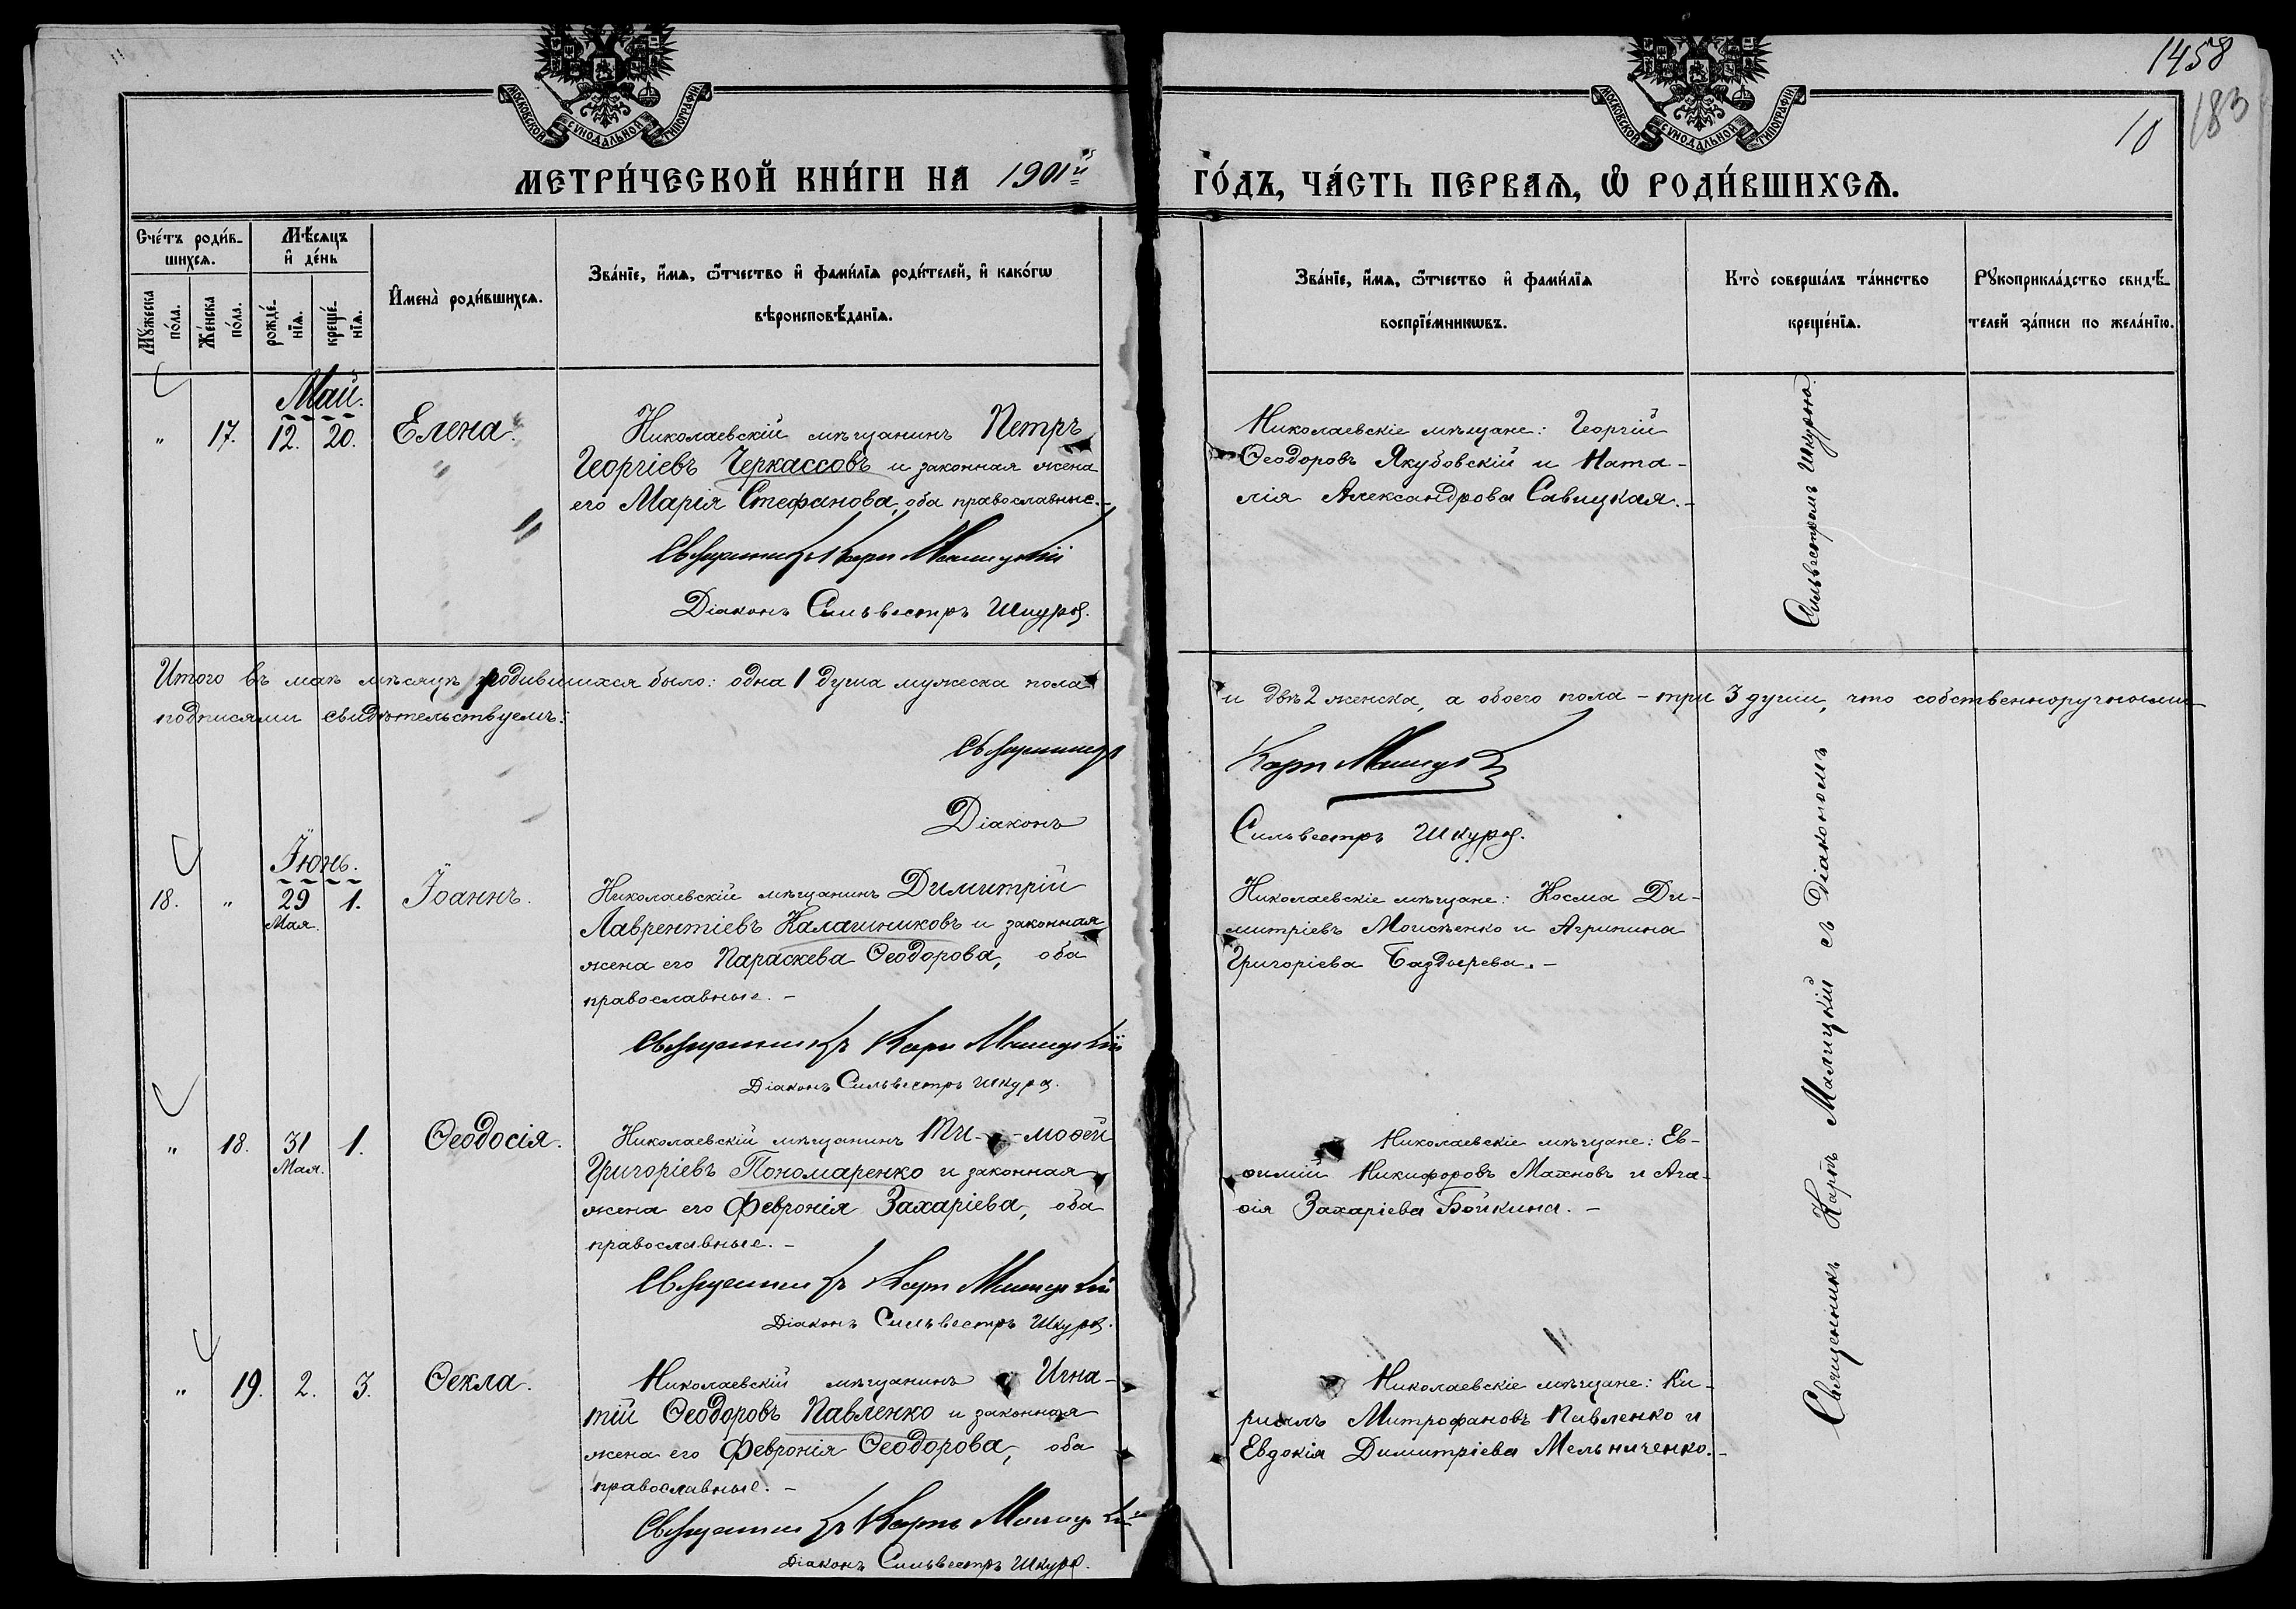 1458
183
10
МОСКОВСКОЙ СѴНОДАЛЬНОЙ ТИПОГРАФІИ
МОСКОВСКОЙ СѴНОДАЛЬНОЙ ТИПОГРАФІИ
МЕТРИ́ЧЕСКОЙ КНИ́ГИ НА 1901й
ГО́ДЪ, ЧА́СТЬ ПЕРВАѦ, Ѽ РОДИ́ВШИХСѦ.
Сче́тъ роди́в-
шихсѧ.
Мѹ́жеска
по́ла.
Же́нска
по́ла.
Мѣ́сѧцъ
и҆ де́нь
рожде́-
нїѧ.
креще́-
нїѧ.
И҆мена̀ роди́вшихсѧ.
Зва́нїе, и҆́мѧ, ѻ҆́тчество и҆ фами́лїѧ роди́телей, и҆ како́гѡ
вѣроисповѣ́данїѧ.
Зва́нїе, и҆́мѧ, ѻ҆́тчество и҆ фами́лїѧ
воспрїе́мникѡвъ.
Кто̀ соверша́лъ та́инство
креще́нїѧ.
Рѹкоприкла́дство свидѣ́-
телей за́писи по жела́нїю.
Май.
" 17. 12. 20. Елена.
Николаевскій мѣщанинъ Петръ
Георгіевъ Черкассовъ и законная жена
его Марія Стефанова, оба православные.-
Священникъ Карпъ Малицкій
Діаконъ Сильвестръ Шкура.
Николаевскіе мѣщане: Георгій
Ѳеодоровъ Якубовскій и Ната-
лія Александрова Савицкая.-
Итого въ маѣ мѣсяцѣ родившихся было: одна 1 душа мужеска пола
и двѣ 2 женска, а обоего пола - три 3 души, что собственноручными
подписями свидѣтельствуемъ:
Священникъ
Карпъ Малицкій
Діаконъ
Сильвестръ Шкура.
Іюнь.
18. " 29 1. Іоаннъ.
Мая.
Николаевскій мѣщанинъ Димитрій
Лаврентіевъ Калашниковъ и законная
жена его Параскева Ѳеодорова, оба
православные. -
Священникъ Карпъ Малицкій
Діаконъ Сильвестръ Шкура.
Николаевскіе мѣщане: Косма Ди-
митріевъ Моисѣенко и Агрипина
Григоріева Баздырева. -
" 18. 31 1. Ѳеодосія.
Мая.
Николаевскій мѣщанинъ Ти- -моѳей
Григоріевъ Пономаренко и законная
жена его Февронія Захаріева, оба
православные. -
Священникъ Карпъ Малицкій
Діаконъ Сильвестръ Шкура.
Николаевскіе мѣщане: Ев-
ѳимій Никифоровъ Махновъ и Ага-
ѳія Захаріева Бойкина. -
" 19. 2. 3. Ѳекла.
Николаевскій мѣщанинъ Игна-
тій Ѳеодоровъ Павленко и законная
жена его Февронія Ѳеодорова, оба
православные. -
Священникъ Карпъ Малицкій
Діаконъ Сильвестръ Шкура.
Николаевскіе мѣщане: Ки-
риллъ Митрофановъ Павленко и
Евдокія Димитріева Мельниченко.-
Священникъ Карпъ Малицкій съ Діакономъ Сильвестромъ Шкурою.